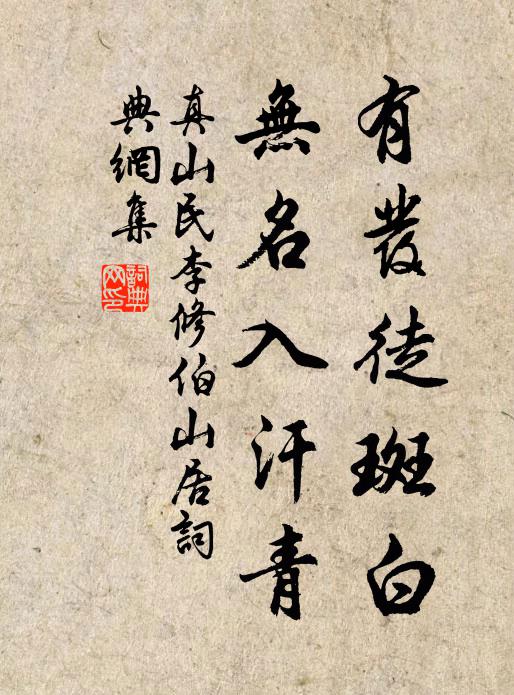 有發徒斑白
無名入汗青
真山民李修伯山居詞
典網集
詞典網印